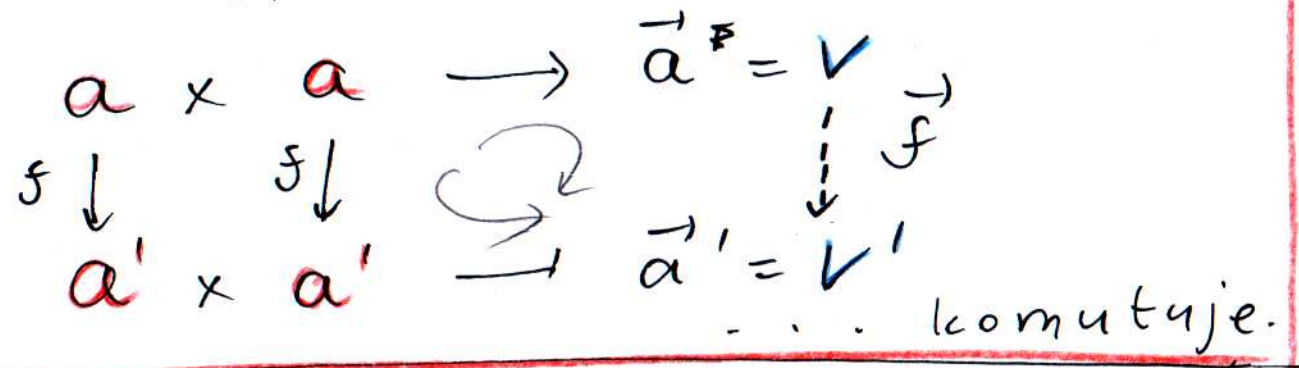 a × a → a⃗ = V
f ↓ f ↓ f⃗
a' × a' → a⃗' = V'
... komutuje.